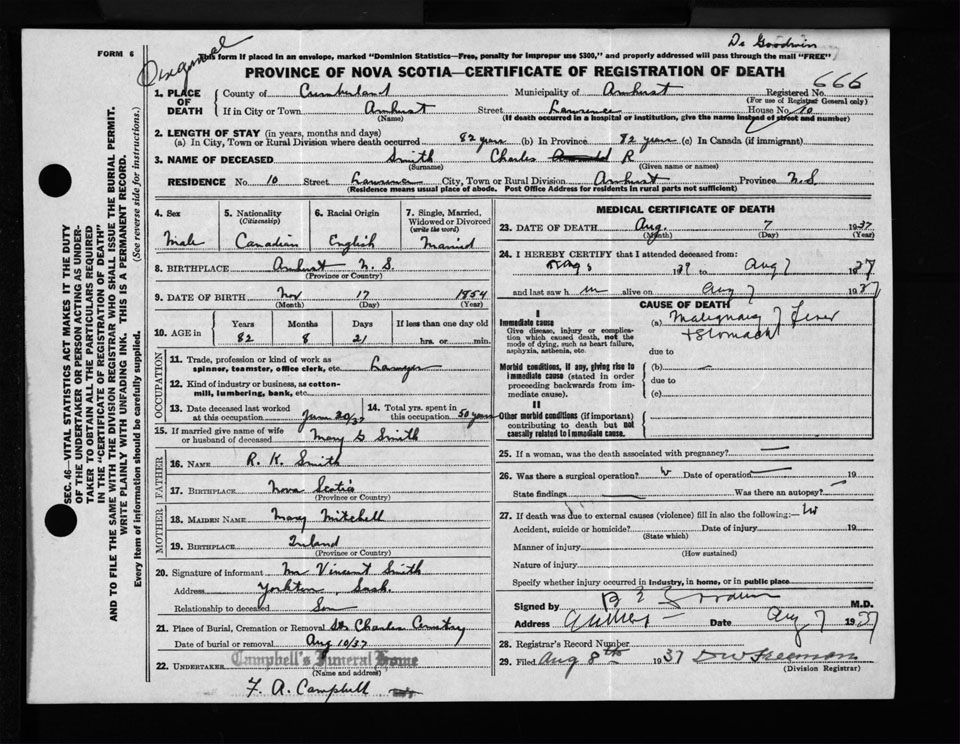 Dr Goodwin
Original
FORM 6
This form if placed in an envelope, marked "Dominion Statistics—Free, penalty for improper use $300," and properly addressed will pass through the mail "FREE"
PROVINCE OF NOVA SCOTIA—CERTIFICATE OF REGISTRATION OF DEATH
666
1. PLACE OF DEATH
County of Cumberland Municipality of Amherst Registered No.
(For use of Registrar General only)
If in City or Town Amherst Street Lawrence House No. 10
(Name) (If death occurred in a hospital or institution, give the name instead of street and number)
2. LENGTH OF STAY (in years, months and days)
(a) In City, Town or Rural Division where death occurred 82 years (b) In Province 82 years (c) In Canada (if immigrant)
3. NAME OF DECEASED Smith Charles R
(Surname) (Given name or names)
RESIDENCE No. 10 Street Lawrence City, Town or Rural Division Amherst Province N.S.
(Residence means usual place of abode. Post Office Address for residents in rural parts not sufficient)
4. Sex
Male
5. Nationality
(Citizenship)
Canadian
6. Racial Origin
English
7. Single, Married, Widowed or Divorced
(write the word)
Married
8. BIRTHPLACE Amherst N.S.
(Province or Country)
9. DATE OF BIRTH Nov 17 1854
(Month) (Day) (Year)
10. AGE in
Years Months Days If less than one day old
82 8 21 hrs. or min.
OCCUPATION
11. Trade, profession or kind of work as
spinner, teamster, office clerk, etc. Lawyer
12. Kind of industry or business, as cotton-
mill, lumbering, bank, etc.
13. Date deceased last worked
at this occupation June 20/37
14. Total yrs. spent in
this occupation 50 years
15. If married give name of wife
or husband of deceased Mary D Smith
FATHER
16. NAME R. K. Smith
17. BIRTHPLACE Nova Scotia
(Province or Country)
MOTHER
18. MAIDEN NAME Mary Mitchell
19. BIRTHPLACE Ireland
(Province or Country)
20. Signature of informant Mr Vincent Smith
Address Yorkton, Sask.
Relationship to deceased Son
21. Place of Burial, Cremation or Removal St Charles Cemetery
Date of burial or removal Aug 10/37
22. UNDERTAKER Campbell's Funeral Home
(Name and address)
F. A. Campbell
MEDICAL CERTIFICATE OF DEATH
23. DATE OF DEATH Aug. 7 1937
(Month) (Day) (Year)
24. I HEREBY CERTIFY that I attended deceased from:
19 to Aug 7 1937
and last saw h im alive on Aug 7 1937
CAUSE OF DEATH
I
Immediate cause
Give disease, injury or complica-
tion which caused death, not the
mode of dying, such as heart failure,
asphyxia, asthenia, etc.
(a) Malignancy of Liver
+ Stomach
due to
Morbid conditions, if any, giving rise to
immediate cause (stated in order
proceeding backwards from im-
mediate cause).
(b)
due to
(c)
II
Other morbid conditions (if important)
contributing to death but not
causally related to immediate cause.
25. If a woman, was the death associated with pregnancy?
26. Was there a surgical operation? Date of operation 19
State findings Was there an autopsy?
27. If death was due to external causes (violence) fill in also the following:—
Accident, suicide or homicide? Date of injury 19
(State which)
Manner of injury
(How sustained)
Nature of injury
Specify whether injury occurred in industry, in home, or in public place
Signed by Goodwin M.D.
Address Amherst Date Aug 7 1937
28. Registrar's Record Number
29. Filed Aug 8th 1937 D W Freeman
(Division Registrar)
SEC. 46—VITAL STATISTICS ACT MAKES IT THE DUTY
OF THE UNDERTAKER OR PERSON ACTING AS UNDER-
TAKER TO OBTAIN ALL THE PARTICULARS REQUIRED
IN THE "CERTIFICATE OF REGISTRATION OF DEATH"
AND TO FILE THE SAME WITH THE DIVISION REGISTRAR WHO SHALL ISSUE THE BURIAL PERMIT.
WRITE PLAINLY WITH UNFADING INK. THIS IS A PERMANENT RECORD.
Every item of information should be carefully supplied. (See reverse side for instructions.)